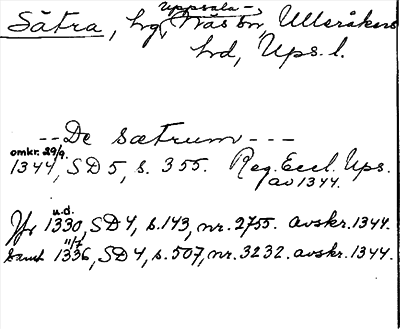 Uppsala-
Sätra, hg, Näs sn, Ulleråkers
hd, Ups. l.
-- De sætrum ---
omkr. 29/9.
1344, SD 5, s. 355. Reg. Eccl. Ups.
av 1344.
u.d.
Jfr 1330, SD 4, s. 143, nr. 2755. avskr. 1344.
11/7
samt 1336, SD 4, s. 507, nr. 3232. avskr. 1344.